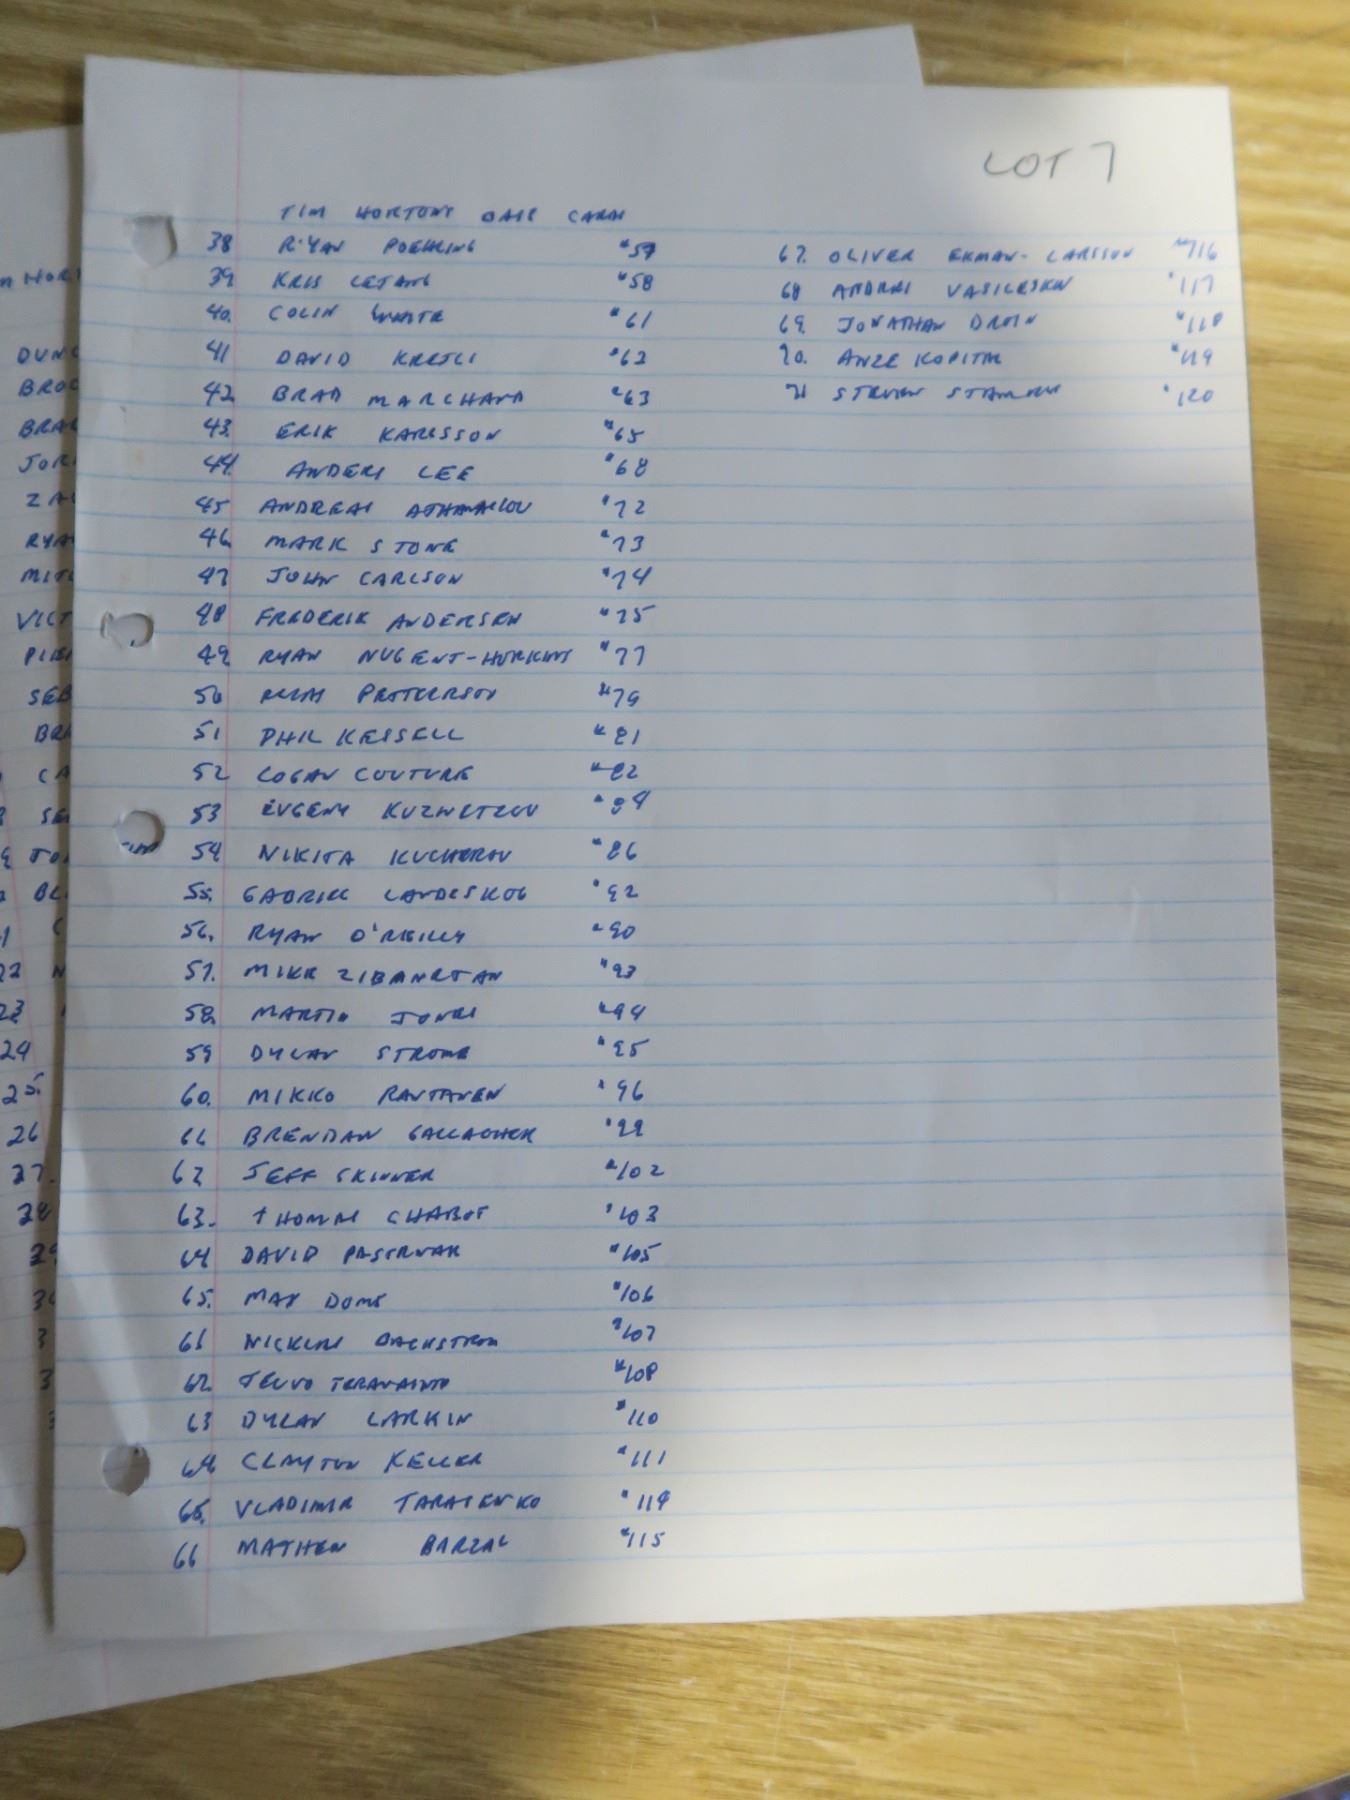 LOT 7
TIM HORTONS BASE CARDS
38 RYAN POEHLING #57
39 KRIS LETANG #58
40. COLIN WHITE #61
41 DAVID KREJCI #62
42. BRAD MARCHAND #63
43. ERIK KARLSSON #65
44. ANDERS LEE #68
45 ANDREAS ATHANASIOU #72
46. MARK STONE #73
47 JOHN CARLSON #74
48 FREDERIK ANDERSEN #75
49. RYAN NUGENT-HOPKINS #77
50 ELIAS PETTERSSON #79
51 PHIL KESSELL #81
52 LOGAN COUTURE #82
53 EVGENY KUZNETZOV #84
54 NIKITA KUCHEROV #86
55. GABRIEL LANDESKOG #92
56. RYAN O'REILLY #90
57. MIKE ZIBANEJAN #93
58. MARTIN JONES #94
59 DYLAN STROME #95
60. MIKKO RANTANEN #96
61. BRENDAN GALLAGHER #99
62 JEFF SKINNER #102
63. THOMAS CHABOT #103
64 DAVID PASTRNAK #105
65. MAX DOMI #106
61 NICKLAS BACKSTROM #107
62. TEUVO #108
63 DYLAN LARKIN #110
64 CLAYTON KELLER #111
65. VLADIMIR TARASENKO #114
66 MATHEW BARZAL #115
67. OLIVER EKMAN-LARSSON #116
68 ANDREI #117
69. JONATHAN DROIN #118
70. ANZE KOPITAR #119
71 STEVEN STAMKOS #120
M HORT
DUNC
BROC
BRA
JOR
ZA
RYA
MIT
VICT
PIE
SEB
BRA
CA
SE
TO
BL
22 N
23
24
25.
26
27.
28